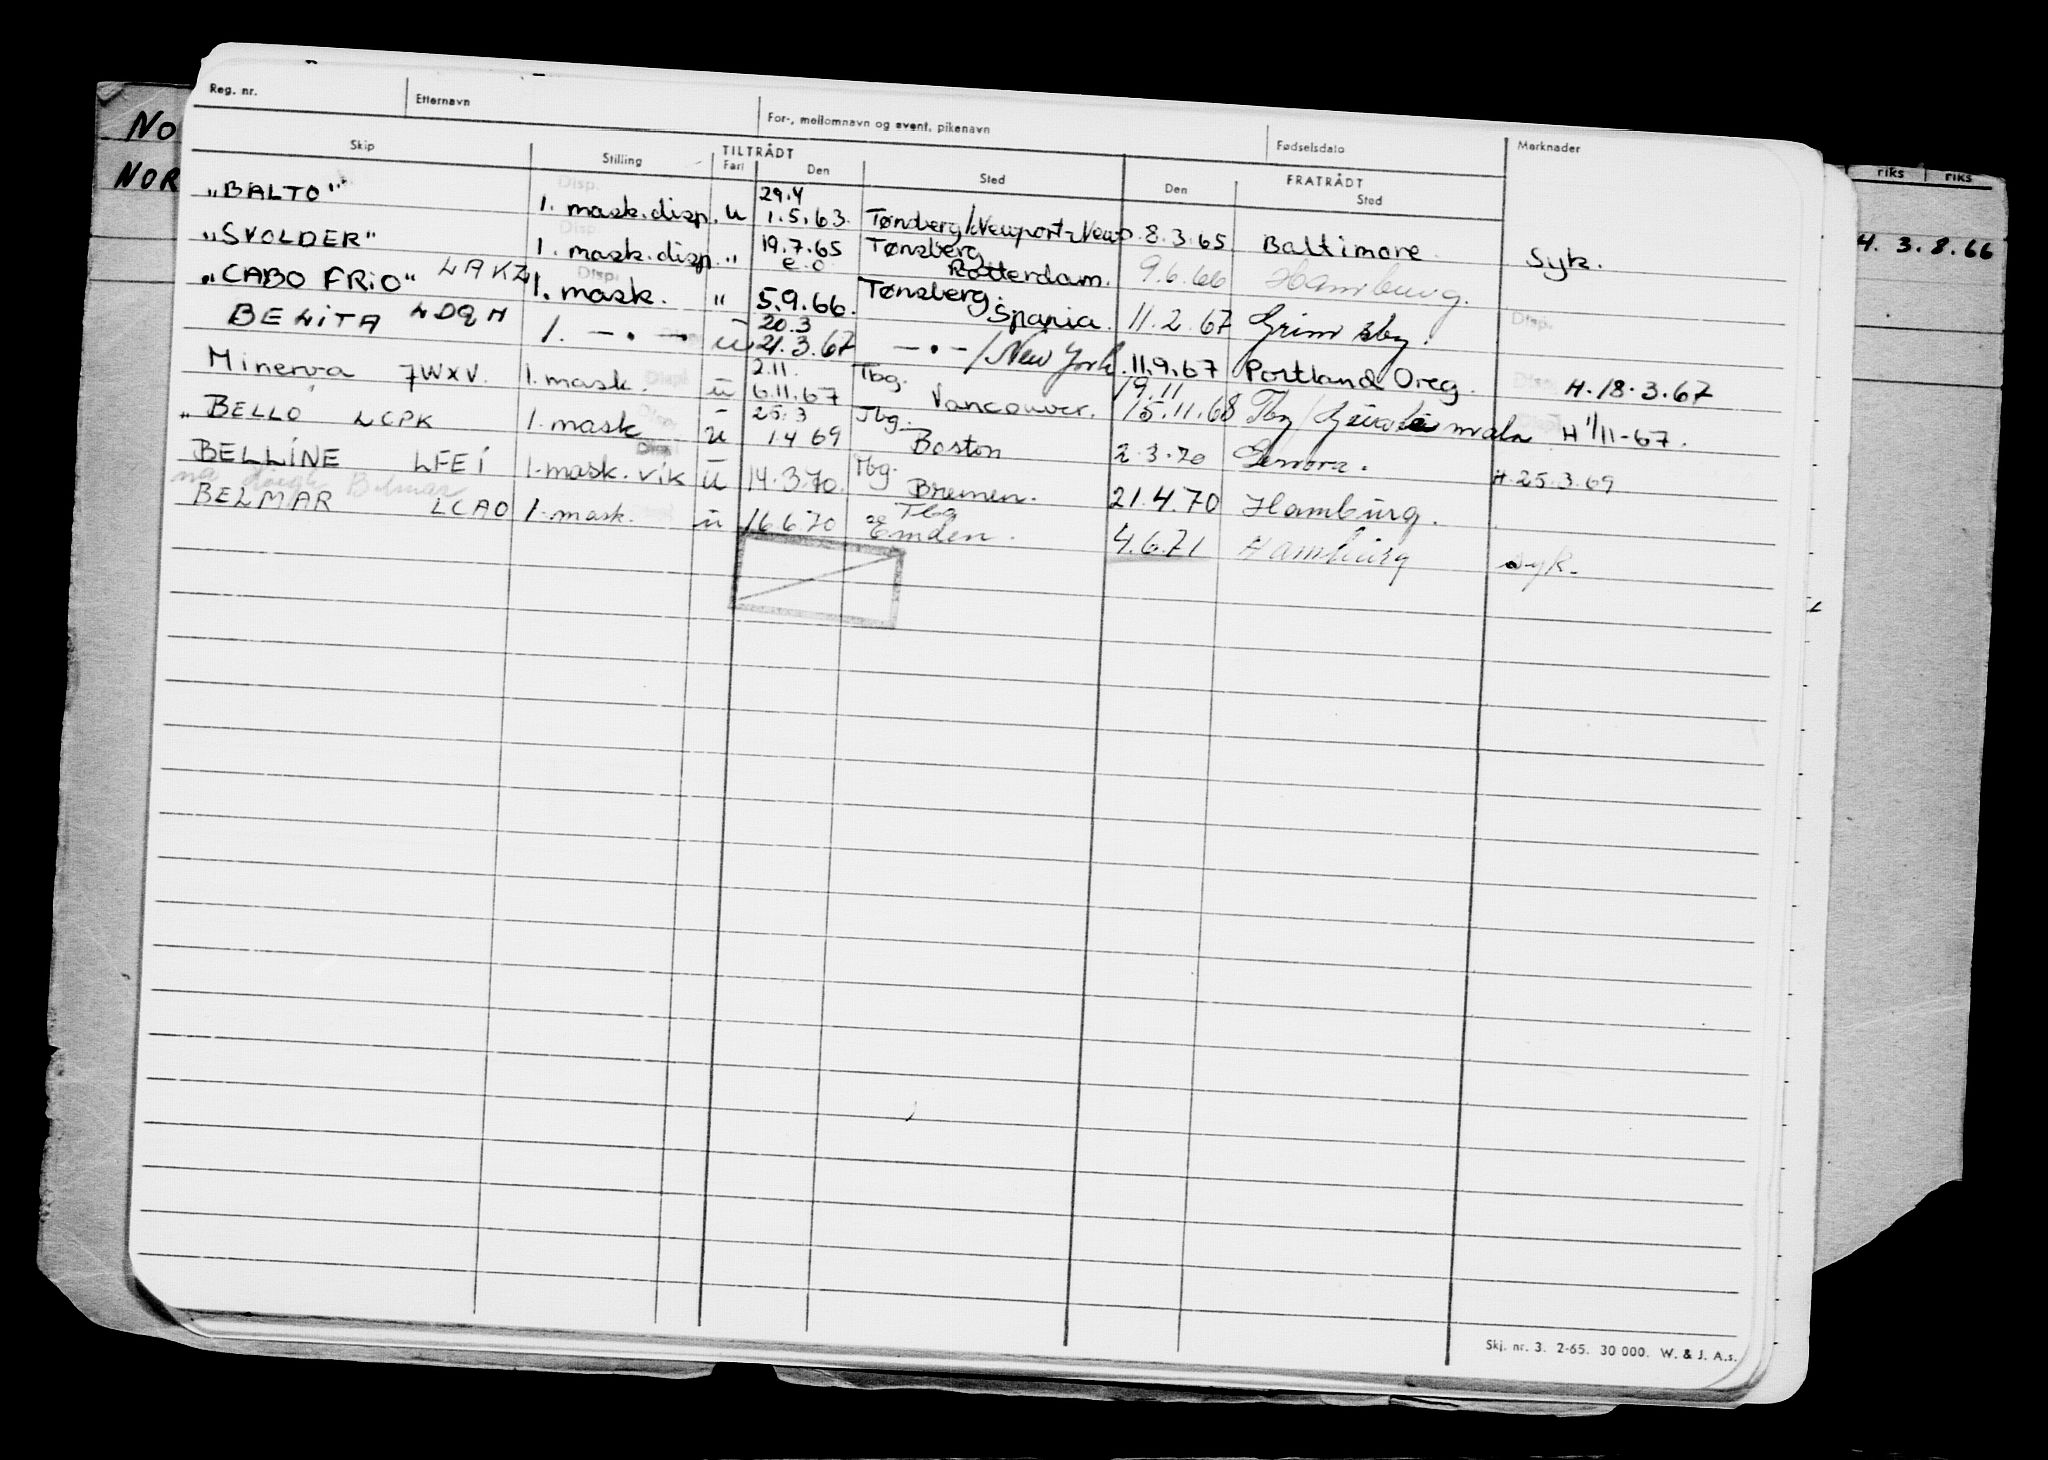 Reg. nr. Etternavn For-, mellomnavn og event. pikenavn Fødselsdato Merknader
Skip Stilling TILTRÅDT FRATRÅDT
Fart Den Sted Den Sted
riks riks
NO
NOR
4. 3. 8. 66
29.4
„BALTO" 1. mask. disp. u 1.5.63. Tønsberg/Newport-News 8.3.65 Baltimore Syk.
„SVOLDER" 1. mask. disp. " 19.7.65 Tønsberg
e.o. Rotterdam. 9.6.66 Hamburg.
„CABO FRiO" LAKZ 1. mask. " 5.9.66. Tønsberg.
Spania. 11.2.67 Grimsby.
20.3
BELiTA LDQH 1. — • — u 21.3.67 — • — / New York. 11.9.67 Portland Oreg. H. 18.3.67
2.11. Tbg. 19.11
Minerva 7WXV. 1. mask. u 6.11.67 Vancouver. 15.11.68 Tbg/ H 1/11-67.
25.3 Tbg.
„BELLO LCPK 1. mask u 1.4 69 Boston 2.3.70 Genova. H. 25.3.69
BELLiNE LFEi 1. mask. vik u 14.3.70. Tbg.
Bremen. 21.4.70 Hamburg.
Belmar
BELMAR LCAO 1. mask. u 16.6.70 Tbg
Emden. 4.6.71 Hamburg syk.
Skj. nr. 3. 2-65. 30 000. W. & J. A.s.